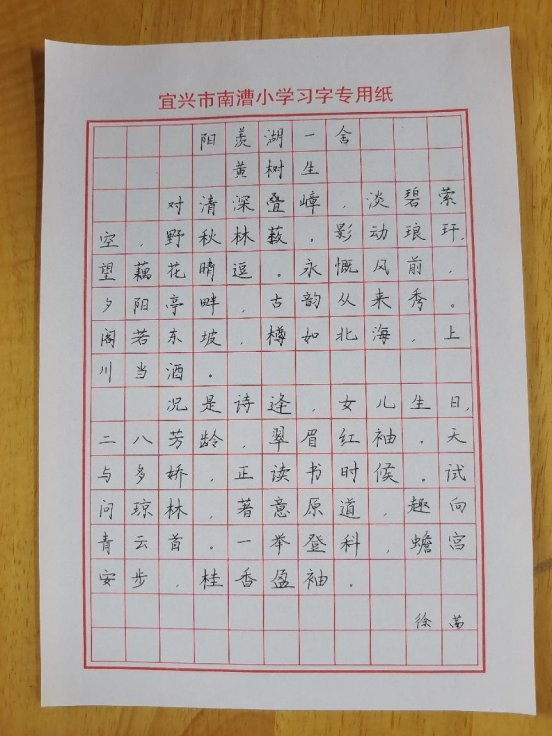 宜兴市南漕小学习字专用纸
阳羡湖一舍
黄树生
对清深叠嶂，淡碧萦
空，野秋林薮，影动琅玕，
望藕花晴逗。永慨风前，
夕阳亭畔，古韵从来秀。
阁若东坡，樽如北海，上
川当酒。
况是诗逢，女儿生日，
二八芳龄，翠眉红袖，天
与多娇，正读书时候。试
问琼林，著意原道，趣向
青云首。一举登科，蟾宫
安步，桂香盈袖。
徐茜